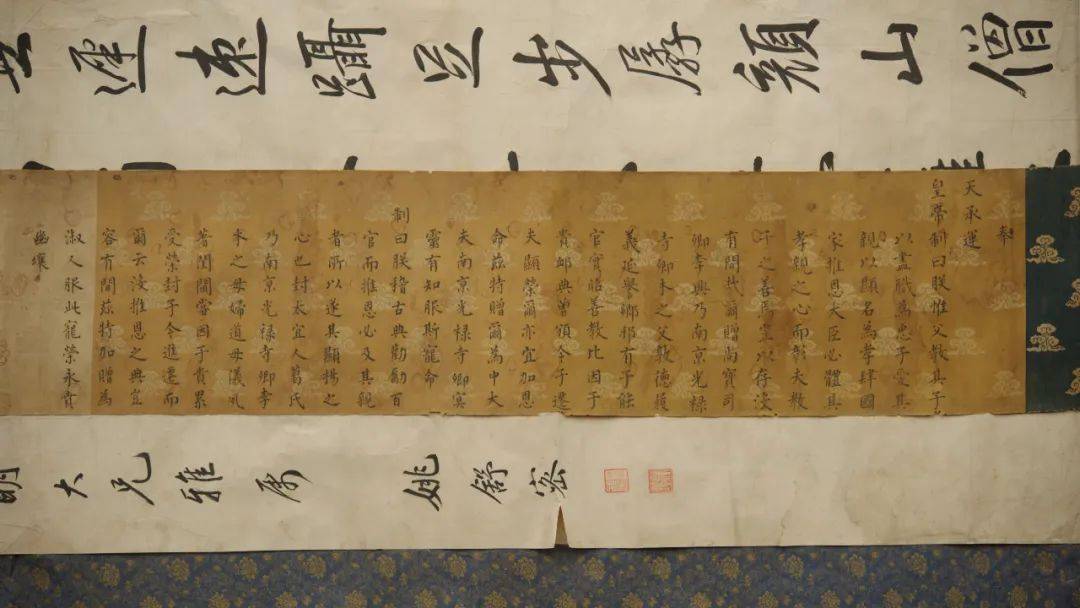 僧山額孱步並躡速遲
天承運
皇帝制曰朕惟父教其子
以盡職為忠子愛其
親以顯名為孝肆國
家推恩大臣必體其
孝親之心而彰夫教
子之善焉宜以存沒
有間哉爾贈尚寶司
卿李典乃南京光祿
寺卿木之父敦德履
義延譽鄉邦有子能
官實昭善教比因子
貴卹典曾頒今子遷
夫顯榮爾亦宜加恩
命茲特贈爾為中大
夫南京光祿寺卿冥
靈有知服斯寵命
制曰朕稽古典勸勵百
官而推恩必及其親
者所以遂其顯揚之
心也封太宜人葛氏
乃南京光祿寺卿李
木之母婦道母儀礼
著閨闥嚮因子貴累
受榮封子今進遷而
爾云沒推恩之典豈
容有間茲特加贈為
淑人服此寵榮永賁
幽壤
明大兄雅屬
姚舒密